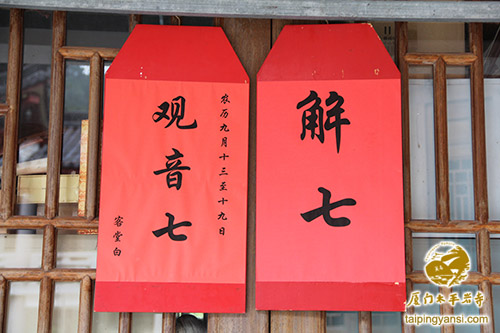 解七
农历九月十三至十九日
观音七
客堂白
厦门太平岩寺
taipingyansi.com